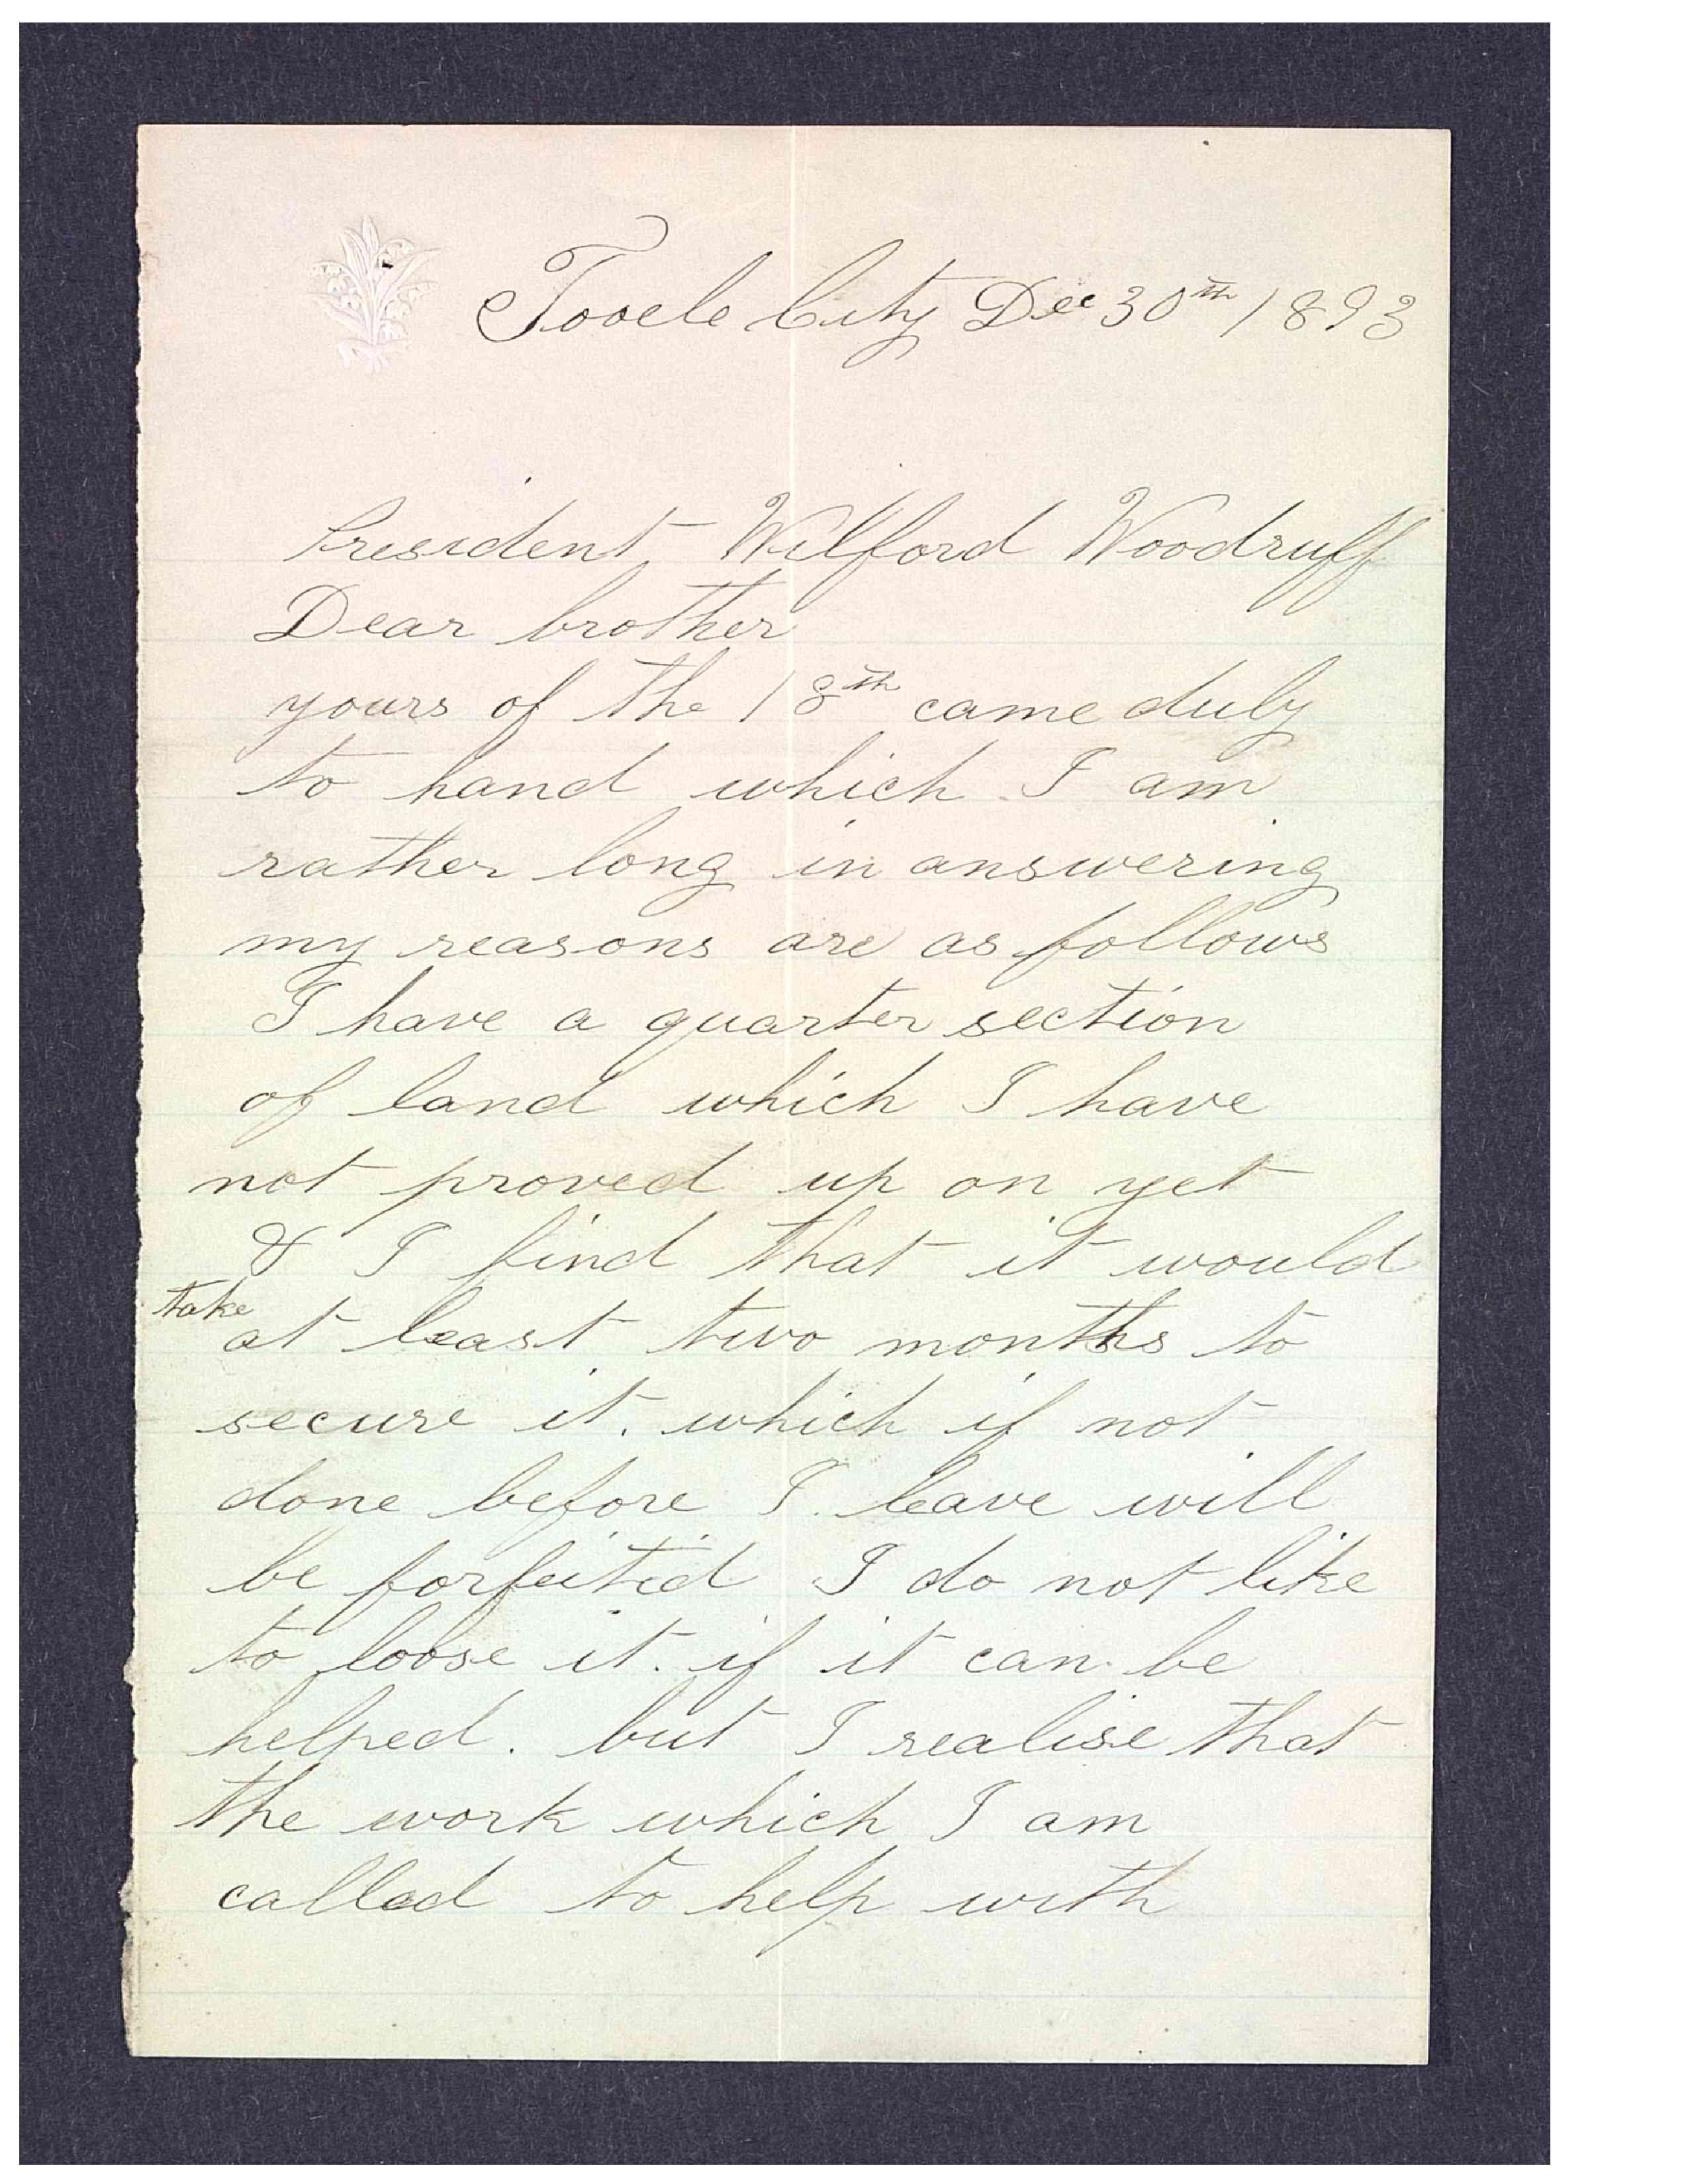 Tooele City Dec 30th 1893
President Wilford Woodruff
Dear brother
yours of the 18th came duly
to hand which I am
rather long in answering
my reasons are as follows
I have a quarter section
of land which I have
not proved up on yet
& I find that it would
take
at least two months to
secure it. which if not
done before I leave will
be forfeited I do not like
to loose it. if it can be
helped. but I realise that
the work which I am
called to help with